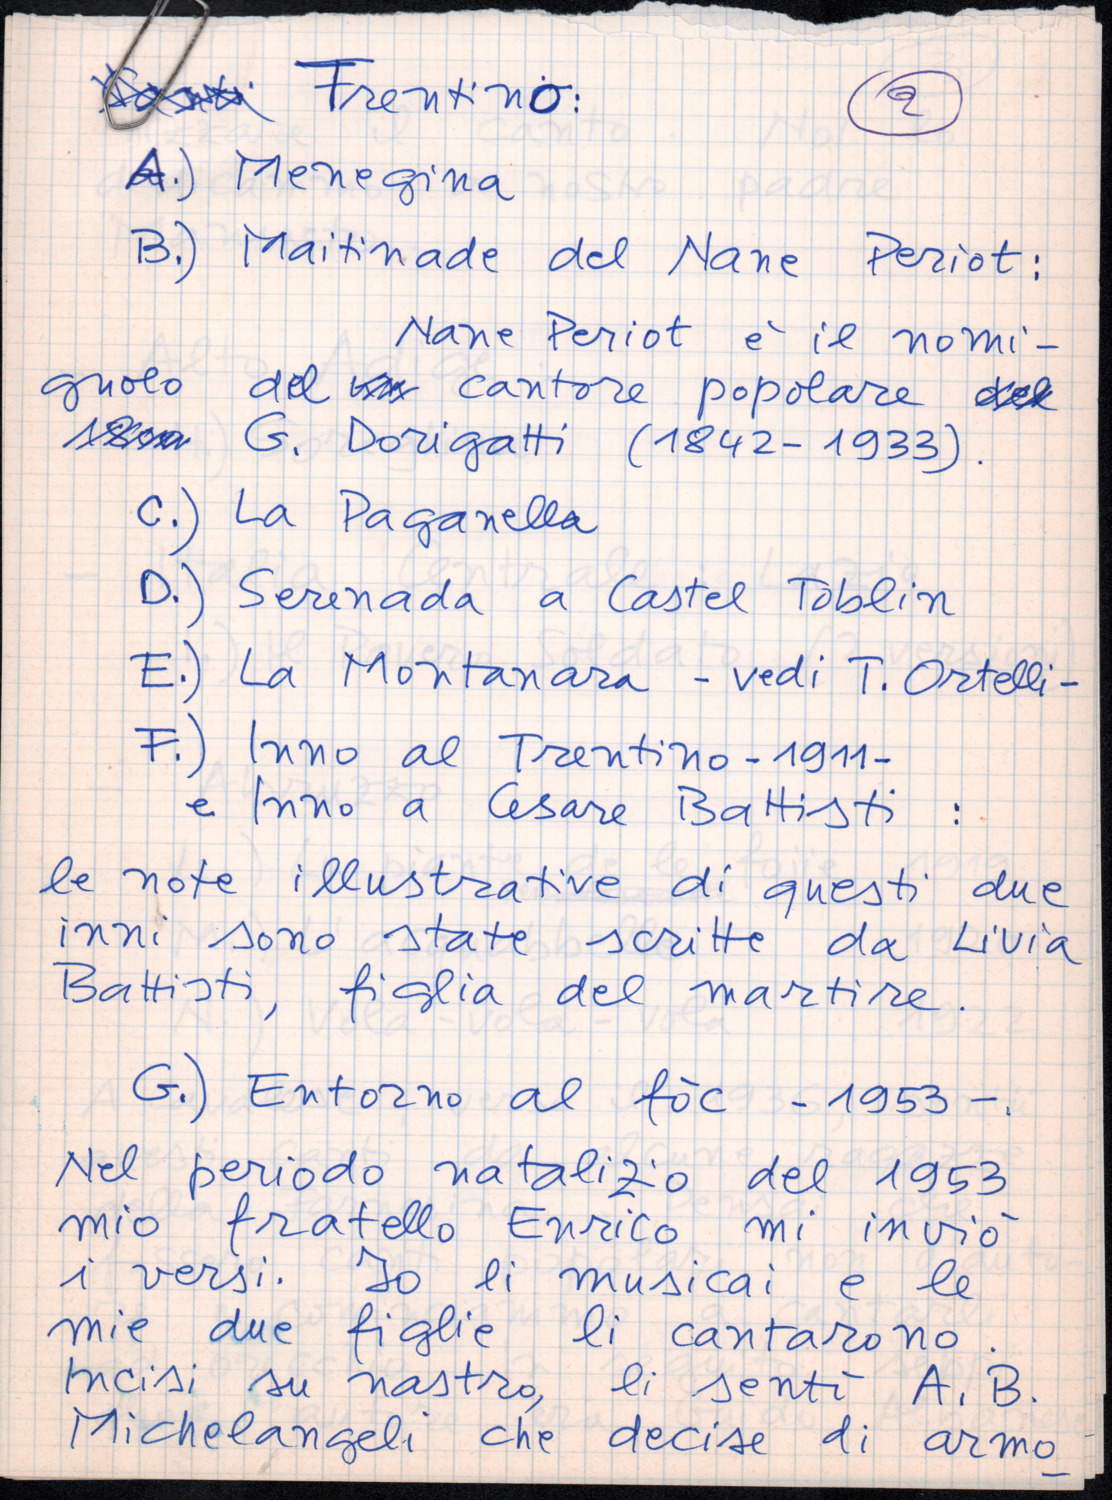 Trentino:
2
A.) Menegina
B.) Maitinade del Nane Periot:
Nane Periot è il nomi-
gnolo del cantore popolare
G. Dorigatti (1842-1933).
C.) La Paganella
D.) Serenada a Castel Toblin
E.) La Montanara - vedi T. Ortelli-
F.) Inno al Trentino - 1911-
e Inno a Cesare Battisti :
le note illustrative di questi due
inni sono state scritte da Livia
Battisti, figlia del martire.
G.) Entorno al fòc - 1953 -.
Nel periodo natalizio del 1953
mio fratello Enrico mi inviò
i versi. Io li musicai e le
mie due figlie li cantarono.
Incisi su nastro, li sentì A. B.
Michelangeli che decise di armo-